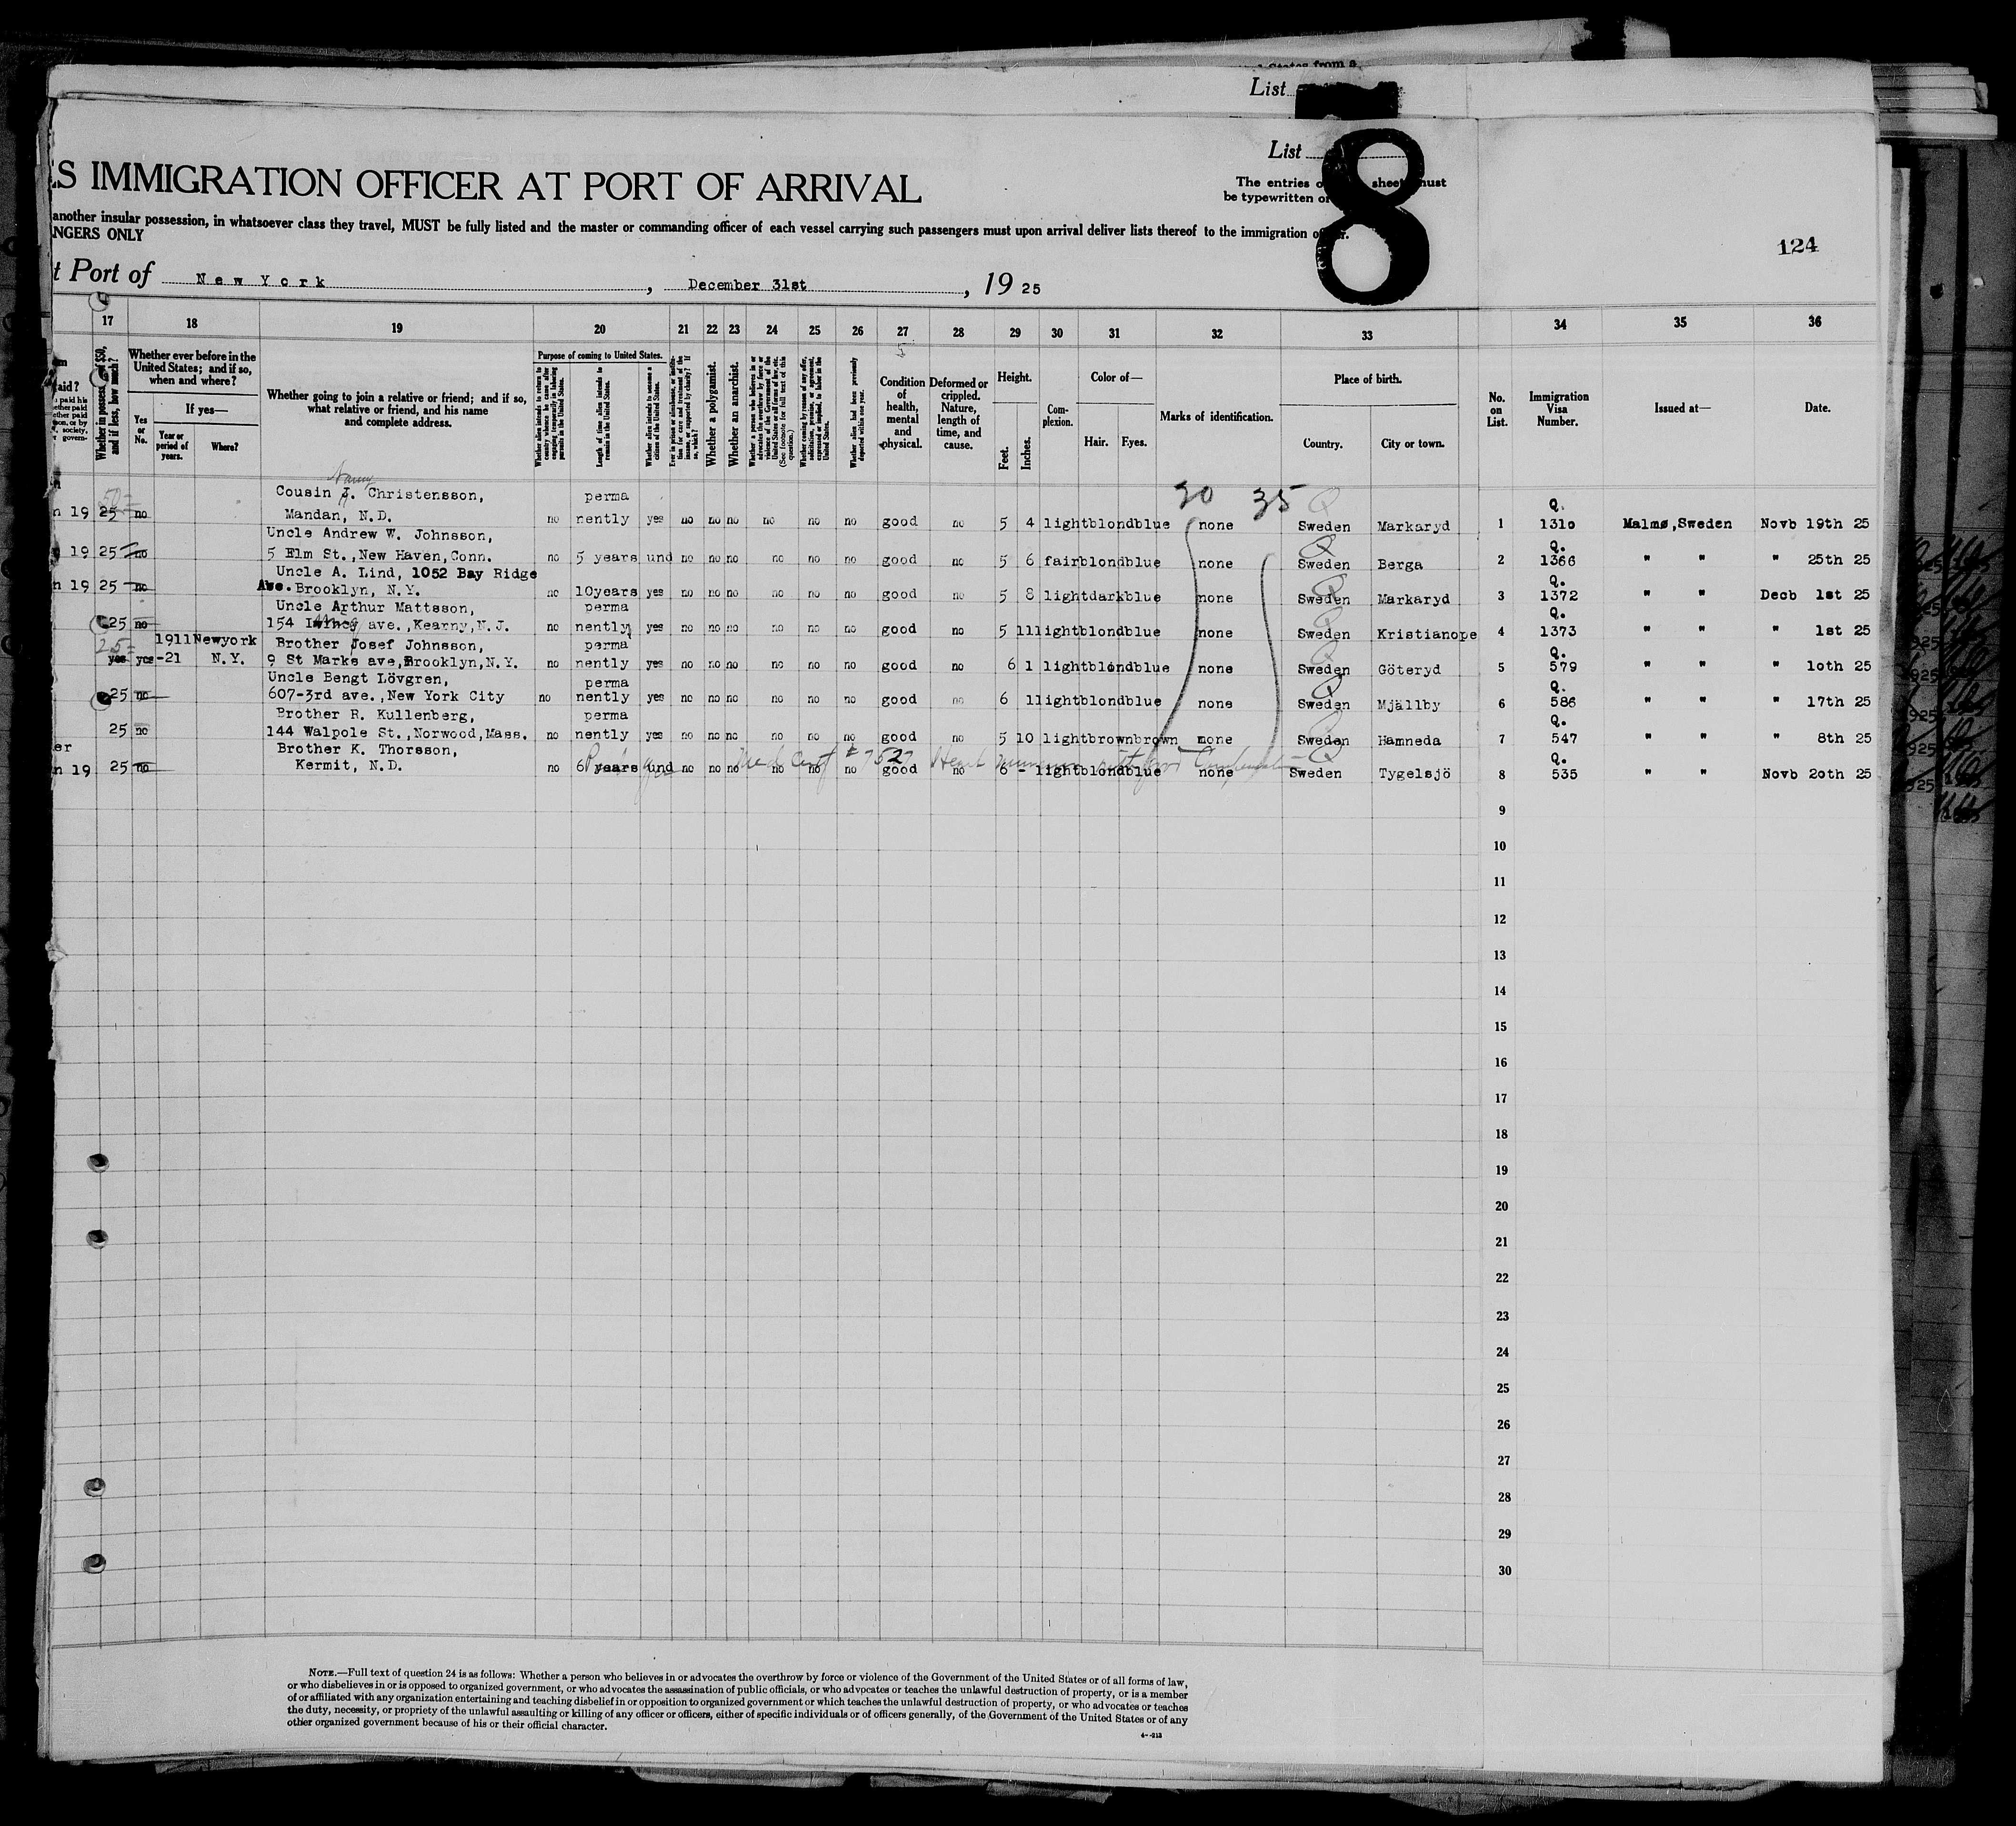 List
List
8
The entries o sheet must
be typewritten or
ES IMMIGRATION OFFICER AT PORT OF ARRIVAL
another insular possession, in whatsoever class they travel, MUST be fully listed and the master or commanding officer of each vessel carrying such passengers must upon arrival deliver lists thereof to the immigration officer.
NGERS ONLY
124
t Port of New York, December 31st, 1925
17 18 19 20 21 22 23 24 25 26 27 28 29 30 31 32 33 34 35 36
Whether in possession of $50, and if less, how much?
Whether ever before in the United States; and if so, when and where?
If yes—
Yes or No.
Year or period of years.
Where?
Whether going to join a relative or friend; and if so, what relative or friend, and his name and complete address.
Purpose of coming to United States.
Length of time alien intends to remain in the United States.
Whether alien intends to become a citizen of the United States.
Whether a polygamist.
Whether an anarchist.
Whether alien had been previously deported within one year.
Condition of health, mental and physical.
Deformed or crippled. Nature, length of time, and cause.
Height.
Feet.
Inches.
Complexion.
Color of—
Hair.
Eyes.
Marks of identification.
Place of birth.
Country.
City or town.
No. on List.
Immigration Visa Number.
Issued at—
Date.
30 35
Cousin J. Christensson, perma Q.
n 19 25 no Mandan, N.D. no nently yes no no no no no no good no 5 4 light blond blue none Sweden Markaryd 1 1310 Malmø, Sweden Novb 19th 25
Uncle Andrew W. Johnsson, Q.
19 25 no 5 Elm St., New Haven, Conn. no 5 years und no no no no no no good no 5 6 fair blond blue none Sweden Berga 2 1366 " " " 25th 25
Uncle A. Lind, 1052 Bay Ridge Q.
n 19 25 no Ave. Brooklyn, N.Y. no 10years yes no no no no no no good no 5 8 light dark blue none Sweden Markaryd 3 1372 " " Decb 1st 25
Uncle Arthur Mattsson, perma Q.
25 no 154 ave., Kearny, N.J. no nently yes no no no no no no good no 5 11 light blond blue none Sweden Kristianope 4 1373 " " " 1st 25
1911 Newyork Brother Josef Johnsson, perma Q.
yes yes -21 N.Y. 9 St Marks ave, Brooklyn, N.Y. no nently yes no no no no no no good no 6 1 light blond blue none Sweden Göteryd 5 579 " " " 10th 25
Uncle Bengt Lövgren, perma Q.
25 no 607-3rd ave., New York City no nently yes no no no no no no good no 6 1 light blond blue none Sweden Mjällby 6 586 " " " 17th 25
Brother R. Kullenberg, perma Q.
25 no 144 Walpole St., Norwood, Mass. no nently yes no no no no no no good no 5 10 light brown brown none Sweden Hamneda 7 547 " " " 8th 25
Brother K. Thorsson, Med Cert #7527 Heart Q.
n 19 25 no Kermit, N.D. no 6 years und no no no no no no good no 6 - light blond blue none Sweden Tygelsjö 8 535 " " Novb 20th 25
9
10
11
12
13
14
15
16
17
18
19
20
21
22
23
24
25
26
27
28
29
30
NOTE.—Full text of question 24 is as follows: Whether a person who believes in or advocates the overthrow by force or violence of the Government of the United States or of all forms of law,
or who disbelieves in or is opposed to organized government, or who advocates the assassination of public officials, or who advocates or teaches the unlawful destruction of property, or is a member
of or affiliated with any organization entertaining and teaching disbelief in or opposition to organized government or which teaches the unlawful destruction of property, or who advocates or teaches
the duty, necessity, or propriety of the unlawful assaulting or killing of any officer or officers, either of specific individuals or of officers generally, of the Government of the United States or of any
other organized government because of his or their official character.